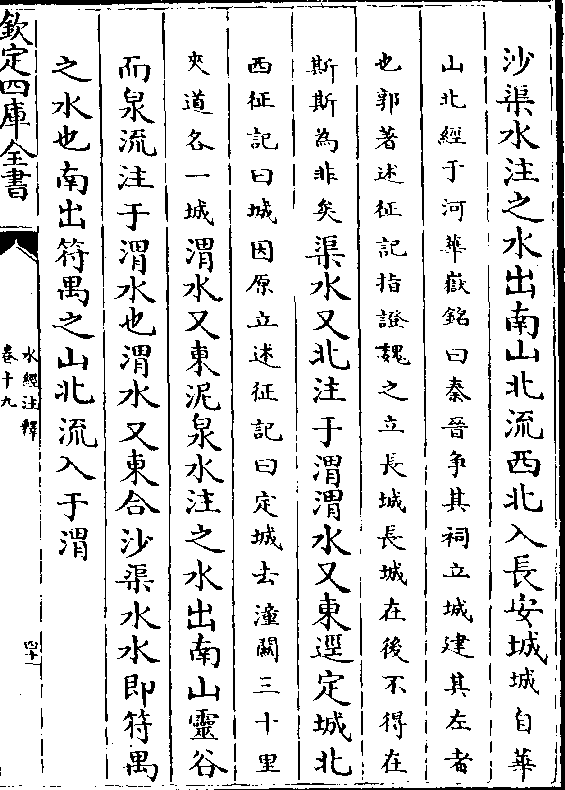 沙渠水注之水出南山北流西北入長安城城自華
山北經于河華嶽銘曰秦晉争其祠立城建其左者
也郭著述征記指證魏之立長城長城在後不得在
斯斯為非矣渠水又北注于渭渭水又東逕定城北
西征記曰城因原立述征記曰定城去潼關三十里
夾道各一城渭水又東泥泉水注之水出南山靈谷
而泉流注于渭水也渭水又東合沙渠水水即符禺
之水也南出符禺之山北流入于渭
欽定四庫全書
水經注釋
卷十九